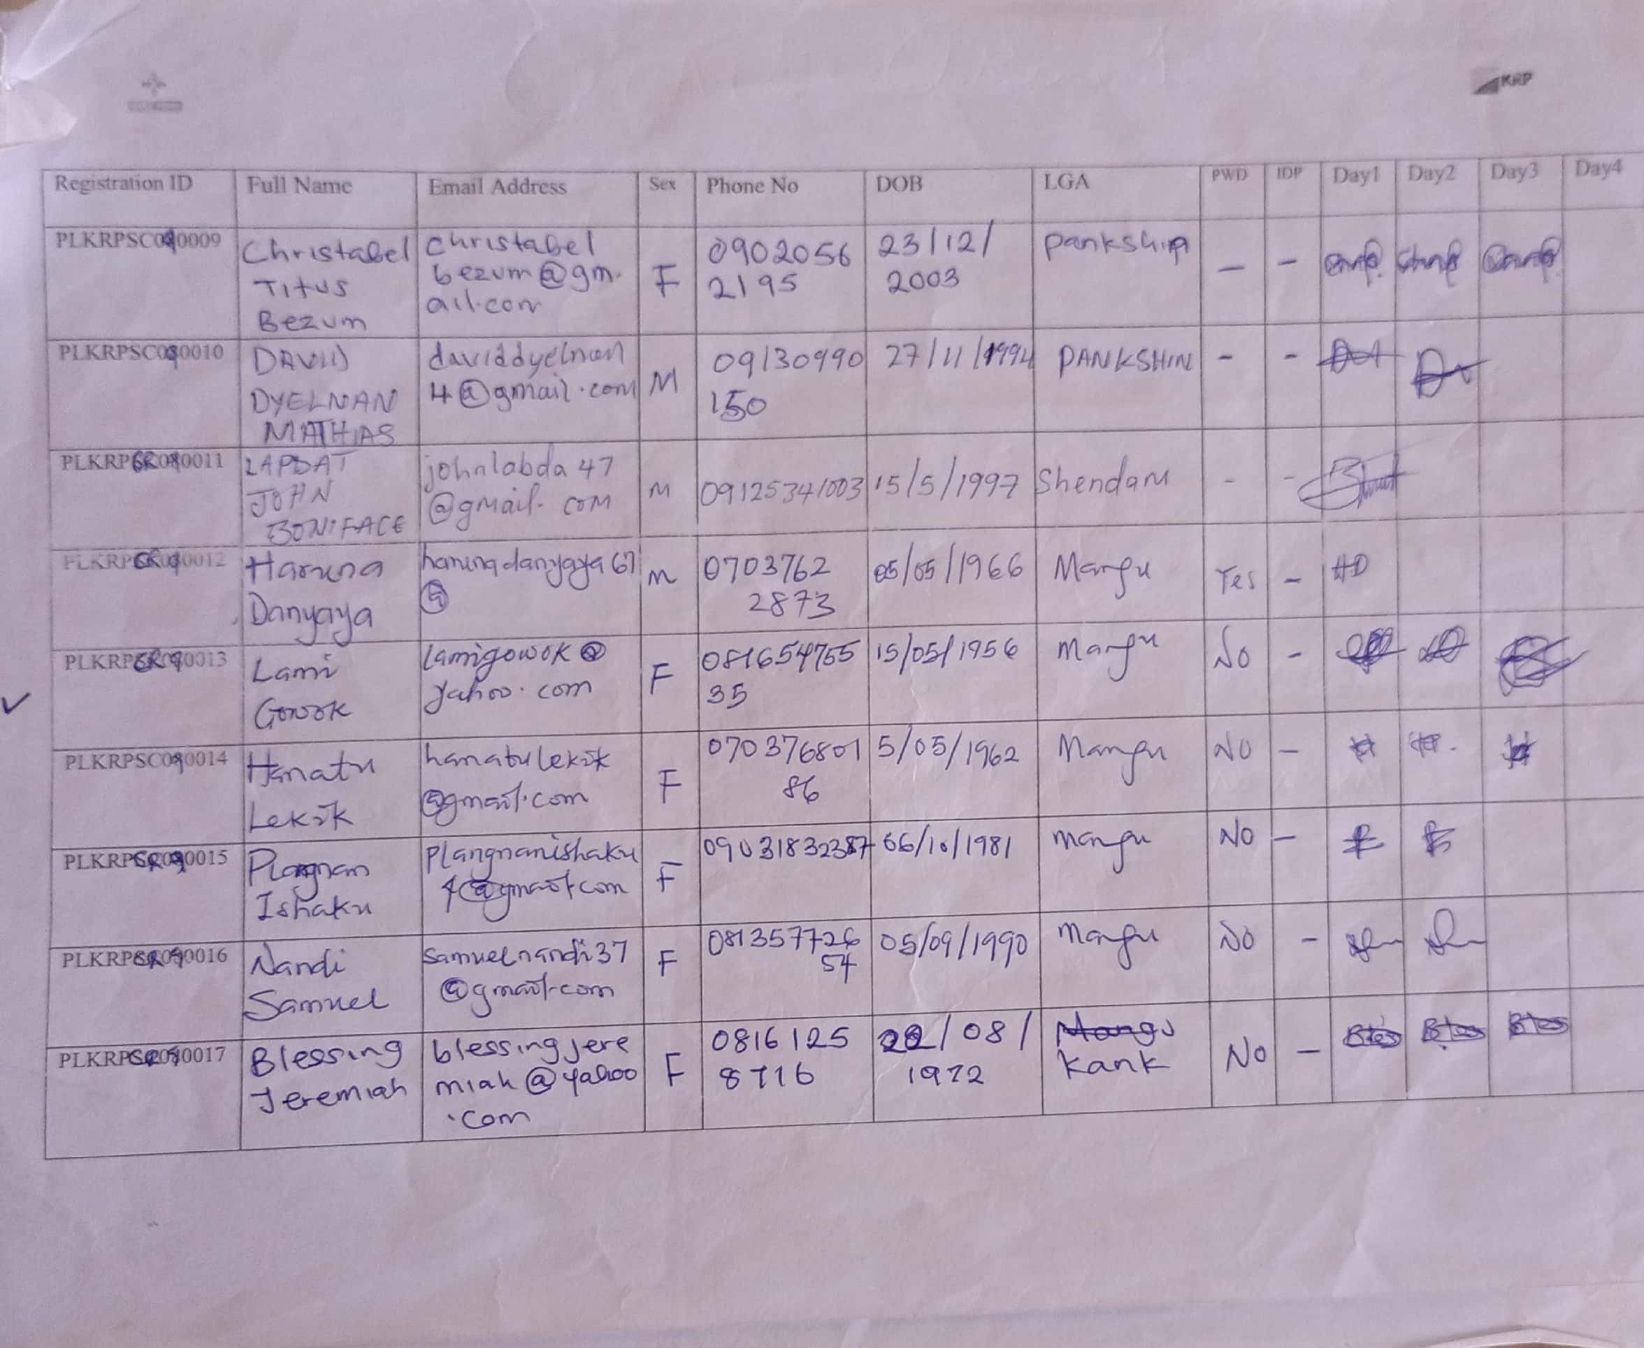 KRP
Registration ID Full Name Email Address Sex Phone No DOB LGA PWD IDP Day1 Day2 Day3 Day4
PLKRPSC090009 Christabel Titus Bezum christabel bezum@gm.ail.com F 0902056 2195 23/12/2003 pankship - -
PLKRPSC090010 DAVID DYELNAN MATHIAS daviddyelnan 4@gmail.com M 09130990 150 27/11/1994 PANKSHIN - -
PLKRPSR090011 LAPDAT JOHN BONIFACE johnlabda47 @gmail.com M 09125341003 15/5/1997 Shendam - -
PLKRPSR090012 Haruna Danyaya harunadanyaya67 @ m 0703762 2873 05/05/1966 Mangu Yes - HD
PLKRPSR090013 Lami Gowok lamigowok@ yahoo.com F 081654755 35 15/05/1956 Mangu No -
PLKRPSC090014 Hanatu Lekik hanatulekik @gmail.com F 070376801 86 5/05/1962 Mangu No -
PLKRPSR090015 Plangnan Ishaku plangnanishaku 4@gmail.com F 09031832387 06/10/1981 Mangu No -
PLKRPSR090016 Nandi Samuel samuelnandi37 @gmail.com F 081357726 54 05/09/1990 Mangu No -
PLKRPSR090017 Blessing Jeremiah blessingjere miah@yahoo .com F 0816125 8716 22/08/1972 Mangu Kank No - Bles Bles Bles